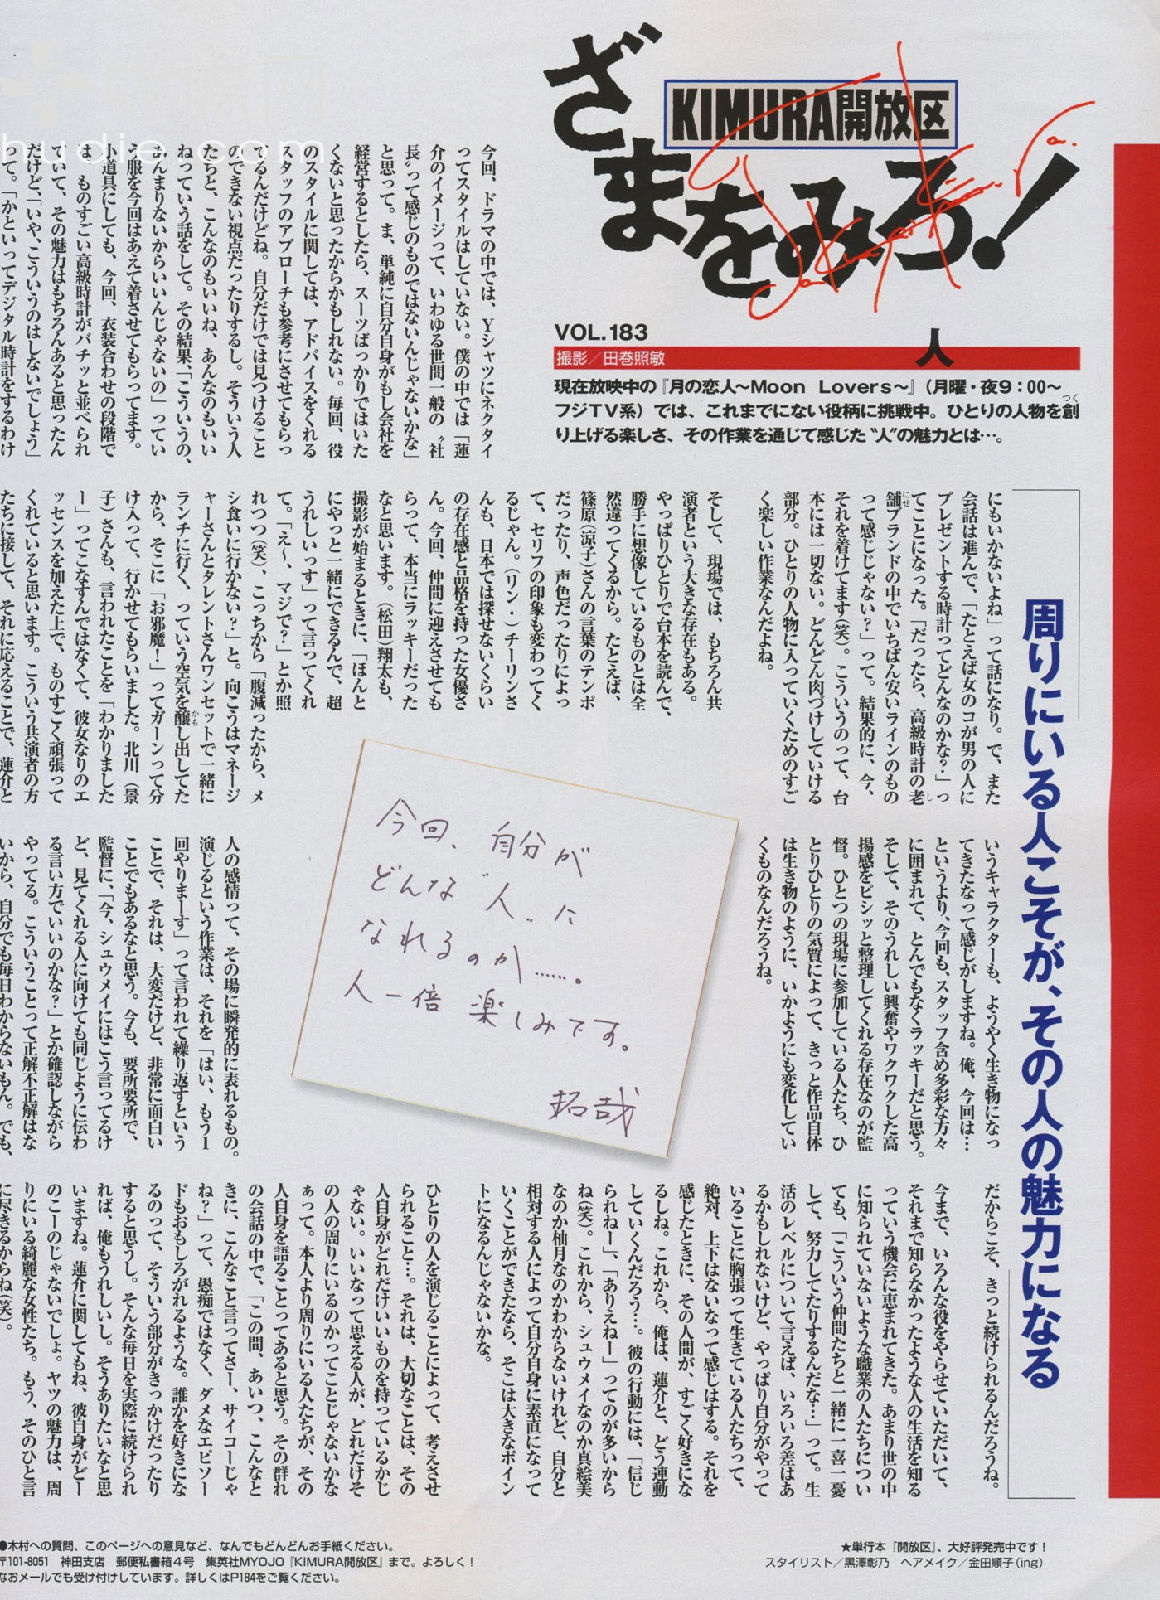 ざまをみろ!
KIMURA開放区
Takuya Kimura.
VOL.183
人
撮影／田巻照敏
現在放映中の『月の恋人〜Moon Lovers〜』(月曜・夜9：00〜
フジTV系)では、これまでにない役柄に挑戦中。ひとりの人物を創
つく
り上げる楽しさ、その作業を通じて感じた“人”の魅力とは…。
周りにいる人こそが、その人の魅力になる
今回、ドラマの中では、Yシャツにネクタイ
ってスタイルはしていない。僕の中では「蓮
介のイメージって、いわゆる世間一般の〝社
長〟って感じのものではないんじゃないかな」
と思って。ま、単純に自分自身がもし会社を
経営するとしたら、スーツばっかりではいた
くないと思ったからかもしれない。毎回、役
のスタイルに関しては、アドバイスをくれる
スタッフのアプローチも参考にさせてもらっ
てるんだけどね。自分だけでは見つけること
のできない視点だったりするし。そういう人
たちと、こんなのもいいね、あんなのもいい
ねっていう話をして。その結果、「こういうの、
あんまりないからいいんじゃないの」ってい
う服を今回はあえて着させてもらってます。
小道具にしても、今回、衣装合わせの段階で
は、ものすごい高級時計がバチッと並べられ
ていて、その魅力はもちろんあると思ったん
だけど、「いや、こういうのはしないでしょう」
て。「かといってデジタル時計をするわけ
にもいかないよね」って話になり。で、また
会話は進んで、「たとえば女のコが男の人に
プレゼントする時計ってどんなのかな？」っ
てことになった。「だったら、高級時計の老
舗ブランドの中でいちばん安いラインのもの
って感じじゃない？」って。結果的に、今、
それを着けてます(笑)。こういうのって、台
本には一切ない。どんどん肉づけしていける
部分。ひとりの人物に入っていくためのすご
く楽しい作業なんだよね。
そして、現場では、もちろん共
演者という大きな存在もある。
やっぱりひとりで台本を読んで、
勝手に想像しているものとは全
然違ってくるから。たとえば、
篠原(涼子)さんの言葉のテンポ
だったり、声色だったりによっ
て、セリフの印象も変わってく
るじゃん。(リン・)チーリンさ
んも、日本では探せないくらい
の存在感と品格を持った女優さ
ん。今回、仲間に迎えさせても
らって、本当にラッキーだった
なと思います。(松田)翔太も、
撮影が始まるときに、「ほんと
にやっと一緒にできるんで、超
うれしいっす」って言ってくれ
て。「え〜、マジで？」とか照
れつつ(笑)、こっちから「腹減ったから、メ
シ食いに行かない？」と。向こうはマネージ
ャーさんとタレントさんワンセットで一緒に
ランチに行く、っていう空気を醸し出してた
から、そこに「お邪魔！」ってガーンって分
け入って、行かせてもらいました。北川(景
子)さんも、言われたことを「わかりました
ー」ってこなすんではなくて、彼女なりのエ
ッセンスを加えた上で、ものすごく頑張って
くれていると思います。こういう共演者の方
たちに接して、それに応えることで、蓮介と
いうキャラクターも、ようやく生き物になっ
てきたなって感じがしますね。俺、今回は…
というより、今回も、スタッフ含め多彩な方々
に囲まれて、とんでもなくラッキーだと思う。
そして、そのうれしい興奮やワクワクした高
揚感をビシッと整理してくれる存在なのが監
督。ひとつの現場に参加している人たち、ひ
とりひとりの気質によって、きっと作品自体
は生き物のように、いかようにも変化してい
くものなんだろうね。
人の感情って、その場に瞬発的に表れるもの。
演じるという作業は、それを「はい、もう1
回やりまーす」って言われて繰り返すという
ことで、それは、大変だけど、非常に面白い
ことでもあるなと思う。今も、要所要所で、
監督に、「今、シュウメイにはこう言ってるけ
ど、見てくれる人に向けても同じように伝わ
る言い方でいいのかな？」とか確認しながら
やってる。こういうことって正解不正解はな
いから、自分でも毎日わからないもん。でも、
だからこそ、きっと続けられるんだろうね。
今まで、いろんな役をやらせていただいて、
それまで知らなかったような人の生活を知る
っていう機会に恵まれてきた。あまり世の中
に知られていないような職業の人たちについ
ても、「こういう仲間たちと一緒に一喜一憂
して、努力してたりするんだな…」って。生
活のレベルについて言えば、いろいろ差はあ
るかもしれないけど、やっぱり自分がやって
いることに胸張って生きている人たちって、
絶対、上下はないなって感じはする。それを
感じたときに、その人間が、すごく好きにな
るしね。これから、俺は、蓮介と、どう連動
していくんだろう…。彼の行動には、「信じ
られねー」、「ありえねー」ってのが多いから
ね(笑)。これから、シュウメイなのか真絵美
なのか柚月なのかわからないけれど、自分と
相対する人によって自分自身に素直になって
いくことができたなら、そこは大きなポイン
トになるんじゃないかな。
ひとりの人を演じることによって、考えさせ
られること…。それは、大切なことは、その
人自身がどれだけいいものを持っているかじ
ゃない。いいなって思える人が、どれだけそ
の人の周りにいるのかってことじゃないかな
ぁって。本人より周りにいる人たちが、その
人自身を語ることってあると思う。その群れ
の会話の中で、「この間、あいつ、こんなと
きに、こんなこと言ってさー、サイコーじゃ
ね？」って、愚痴ではなく、ダメなエピソー
ドもおもしろがれるような。誰かを好きにな
るのって、そういう部分がきっかけだったり
すると思うし。そんな毎日を実際に続けられ
れば、俺もうれしいし。そうありたいなと思
いますね。蓮介に関してもね、彼自身がどー
のこーのじゃないでしょ。ヤツの魅力は、周
りにいる綺麗な女性たち。もう、そのひと言
に尽きるからね(笑)。
今回、自分が
どんな〝人〟に
なれるのか……。
人一倍 楽しみです。
拓哉
●木村への質問、このページへの意見など、なんでもどんどんお手紙ください。
〒101-8051 神田支店 郵便私書箱4号 集英社MYOJO『KIMURA開放区』まで。よろしく！
なおメールでも受け付けています。詳しくはP184をご覧ください。
★単行本『開放区』、大好評発売中です！
スタイリスト／黒澤彰乃 ヘアメイク／金田順子(ing)
hudie.com